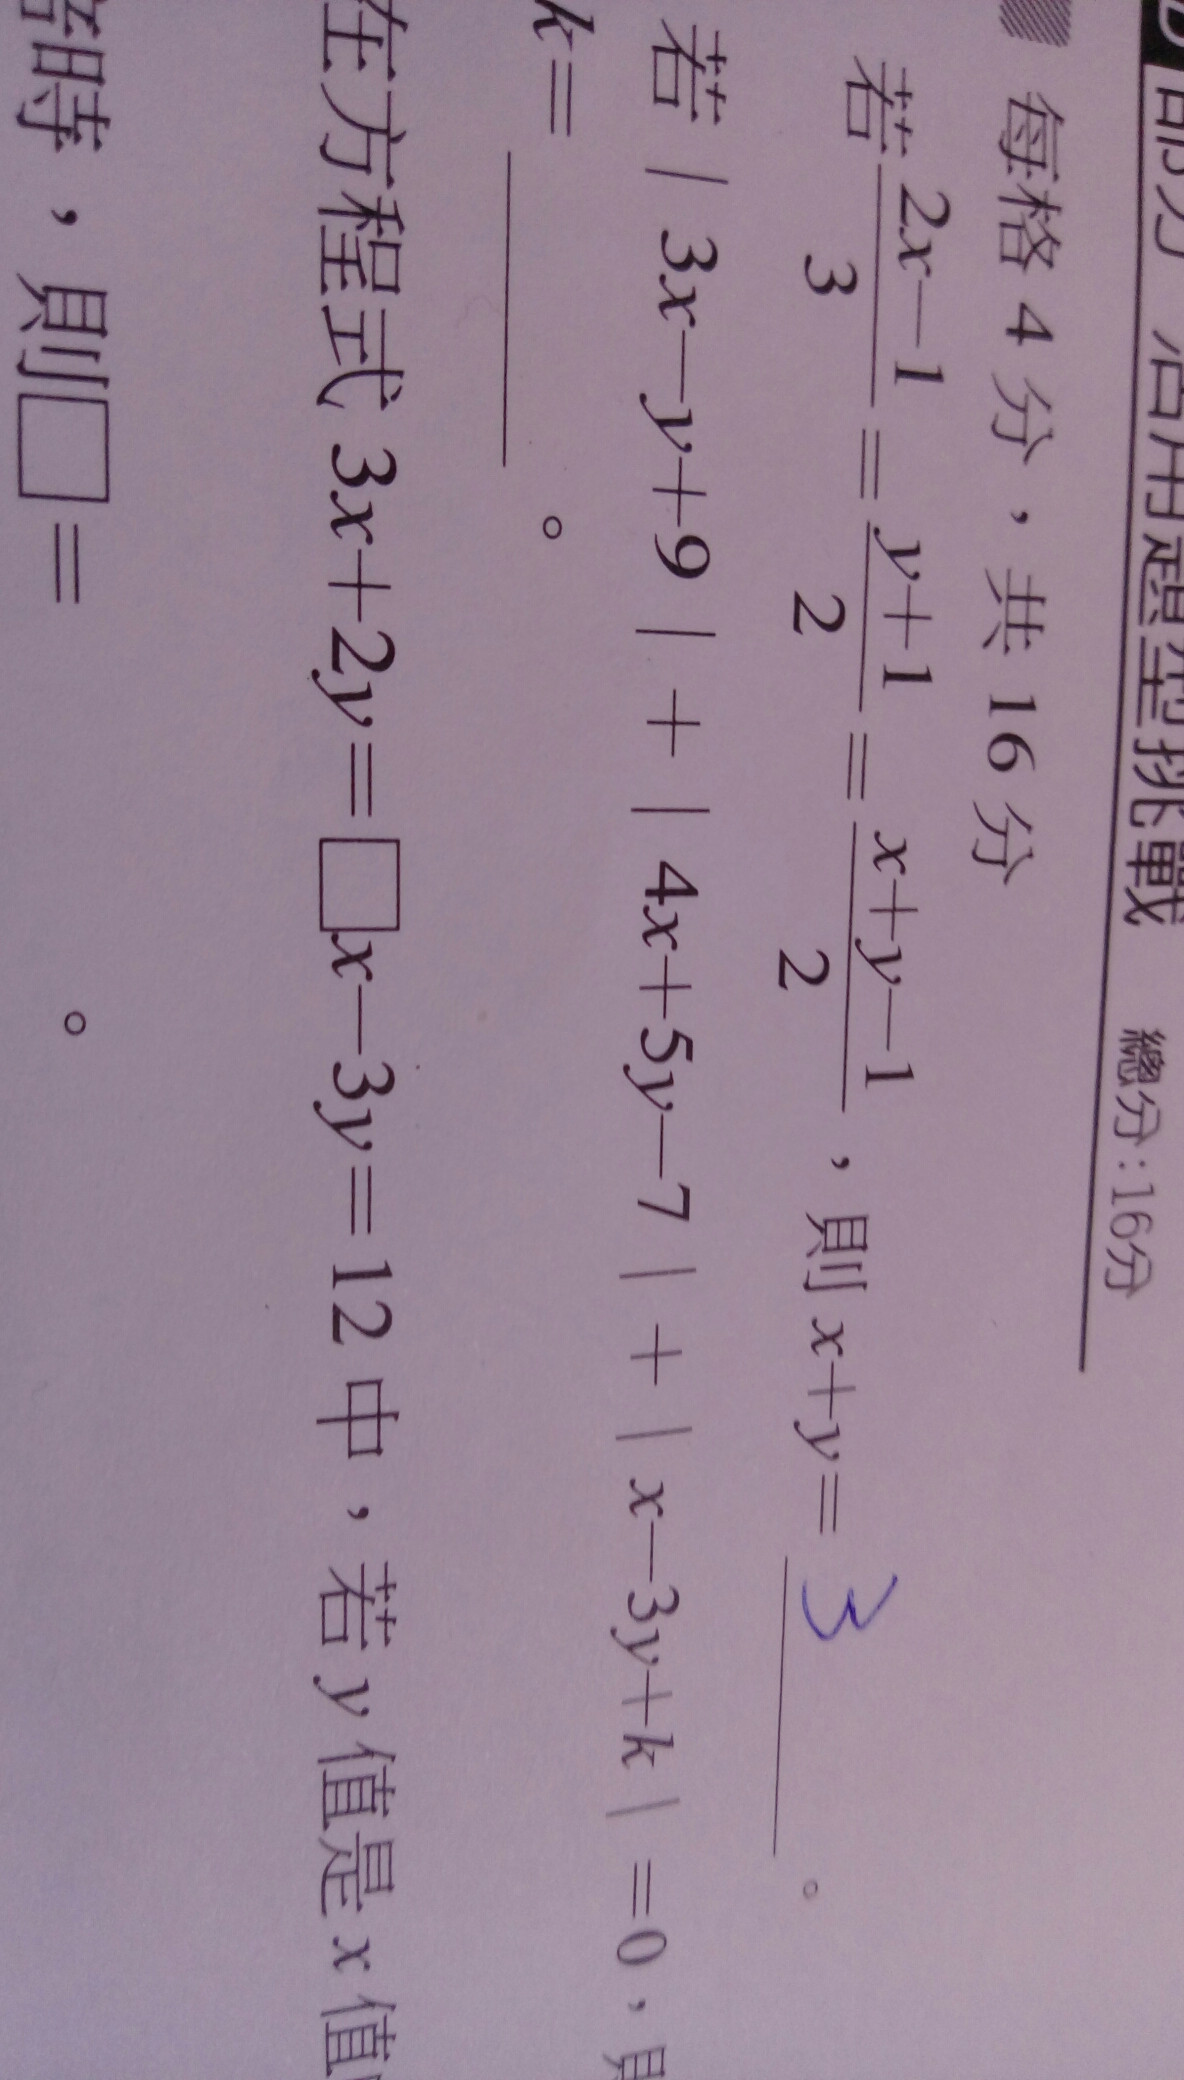 部分 活用題型挑戰 總分:16分
每格 4 分,共 16 分
若 \frac{2x-1}{3} = \frac{y+1}{2} = \frac{x+y-1}{2} ,則 x+y= 3 。
若 | 3x-y+9 | + | 4x+5y-7 | + | x-3y+k | =0,則
k= 。
在方程式 3x+2y=□x-3y=12 中,若 y 值是 x 值
倍時,則□= 。